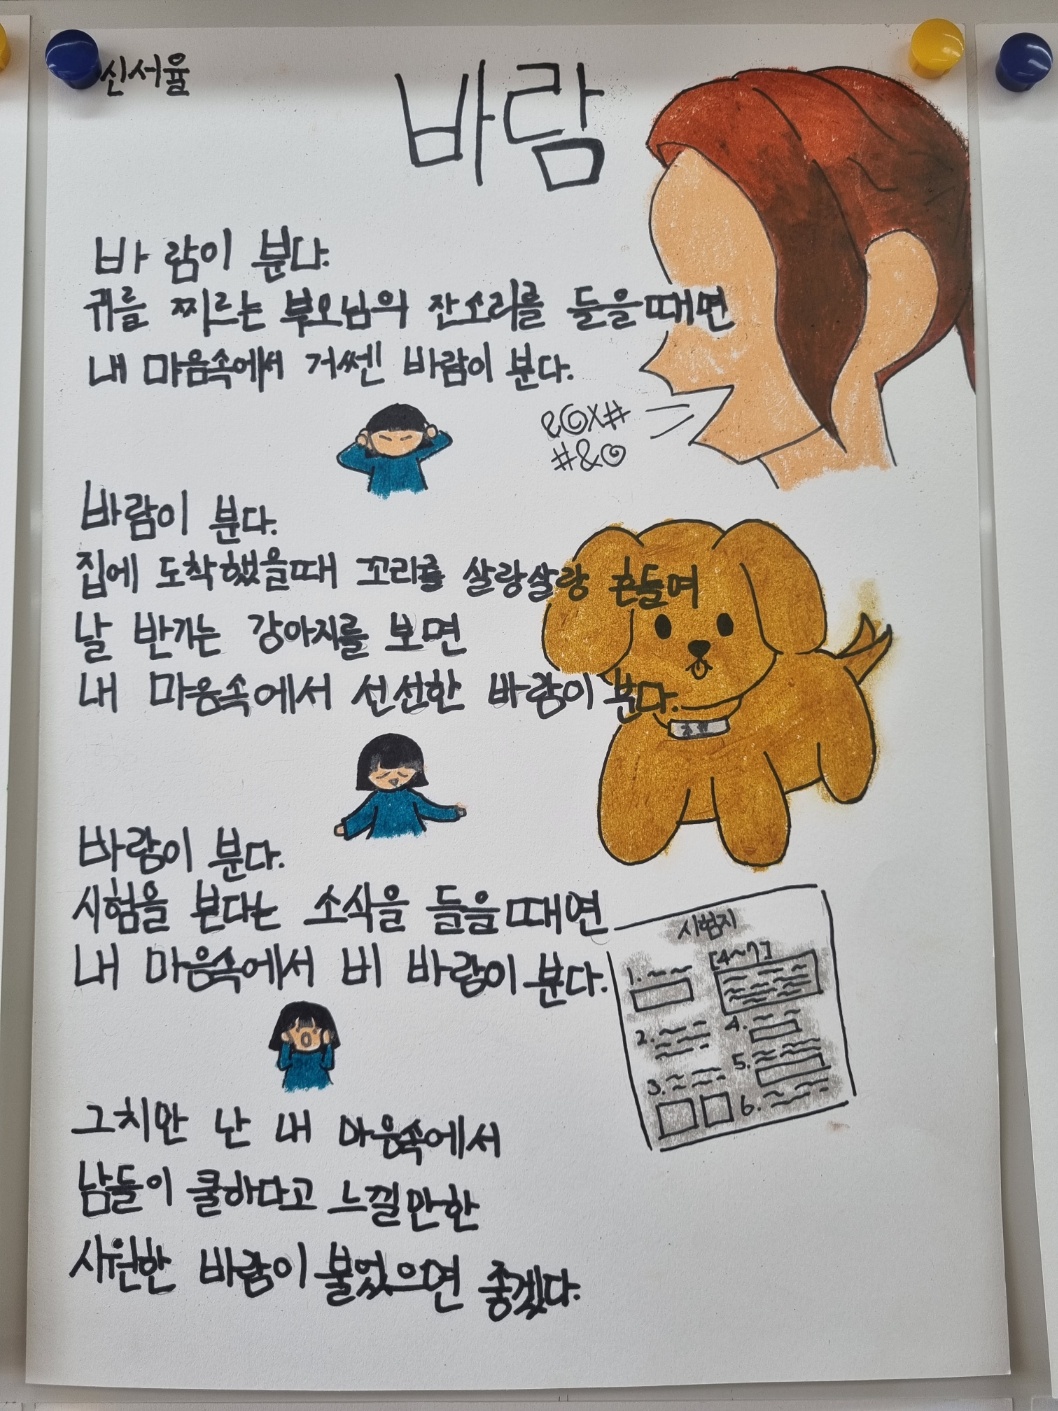 신서율
바람
바람이 분다.
귀를 찌르는 부모님의 잔소리를 들을때면
내 마음속에서 거쎈 바람이 분다.
e@x#
#&@
바람이 분다.
집에 도착했을때 꼬리를 살랑살랑 흔들며
날 반기는 강아지를 보면
내 마음속에서 선선한 바람이 분다.
바람이 분다.
시험을 본다는 소식을 들을때면
내 마음속에서 비 바람이 분다.
시험지
1.
[4~7]
2.
4.
3.
5.
6.
그치만 난 내 마음속에서
남들이 쿨하다고 느낄만한
시원한 바람이 불었으면 좋겠다.